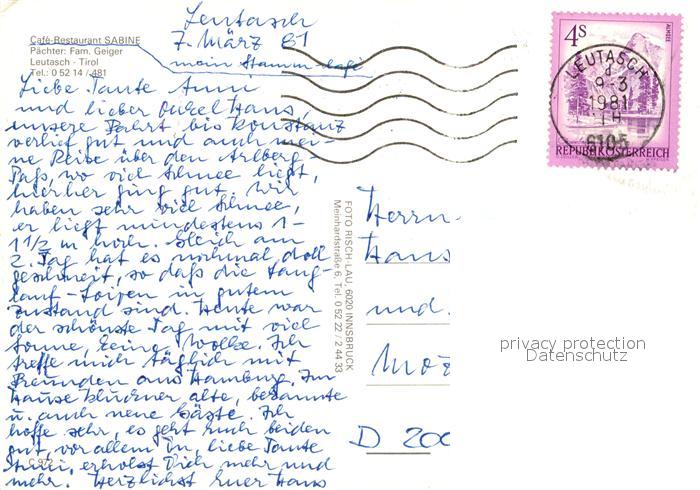 Leutasch
7. März 81
mein Stammcafé
Café-Restaurant SABINE
Pächter: Fam. Geiger
Leutasch - Tirol
Tel.: 0 52 14 / 481
Liebe Tante Anni
und lieber Onkel Hans,
unsere Fahrt bis Konstanz
verlief gut und auch mei-
ne Reise über den Arlberg-
Paß, wo viel Schnee liegt,
hierher ging gut. Wir
haben sehr viel Schnee,
er liegt mindestens 1-
1 1/2 m hoch. Gleich am
2. Tag hat es nochmal doll
geschneit, so daß die Lang-
lauf-Loipen in gutem
Zustand sind. Heute war
der schönste Tag mit viel
Sonne, keine Wolke. Ich
treffe mich täglich mit
Freunden aus Hamburg. Im
Hause alte, bekannte
u. auch neue Gäste. Ich
hoffe sehr, es geht Euch beiden
gut, vor allem Du, liebe Tante
Anni, erholst Dich mehr und
mehr. Herzlichst Euer Hans
C 972
FOTO RISCH-LAU, 6020 INNSBRUCK
Meinhardstraße 6, Tel. 0 52 22 / 2 44 33
4S
ALMSEE
REPUBLIK ÖSTERREICH
LEUTASCH
9.-3
1981
6105
Herrn
Hans
und
D 200
privacy protection
Datenschutz